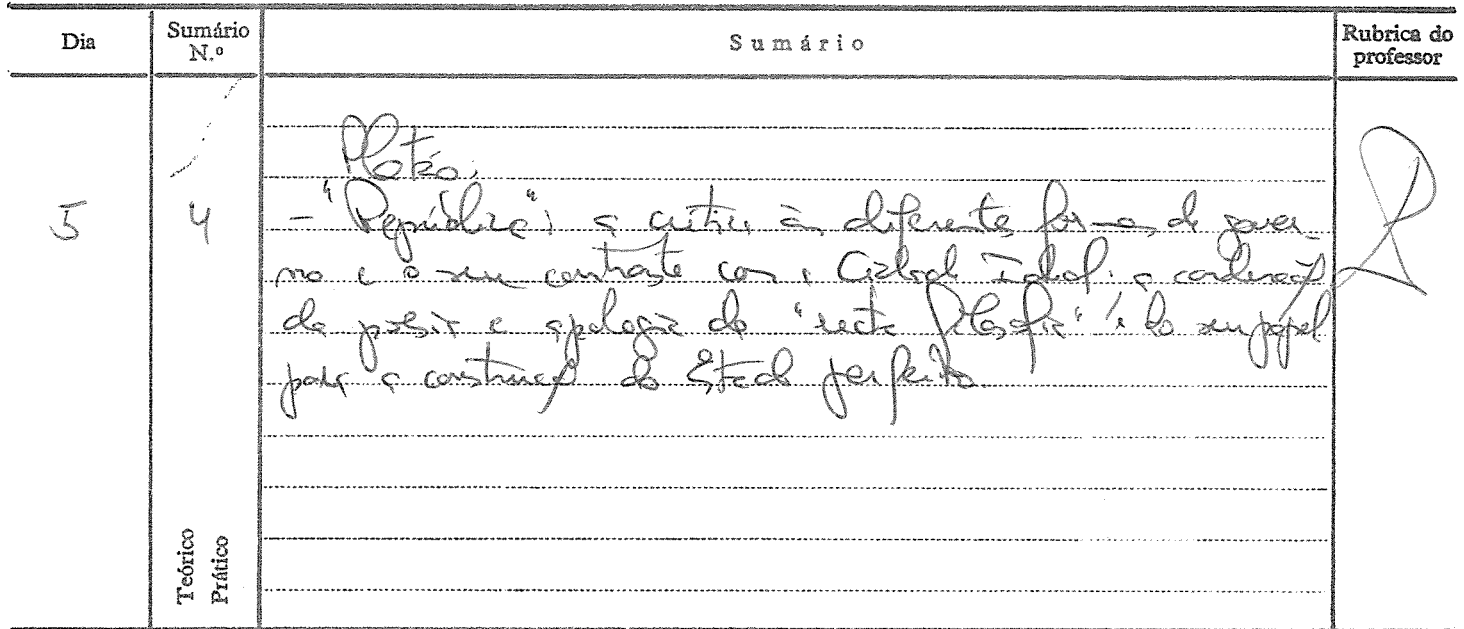 Dia
Sumário N.º
Sumário
Rubrica do professor
5
4
Platão:
- "República": a crítica às diferentes formas de gover-
no e o seu contraste com a Cidade Ideal: a condenação
da poesia e apologia da "recta filosofia" e do seu papel
para a construção do Estado perfeito.
Teórico
Prático